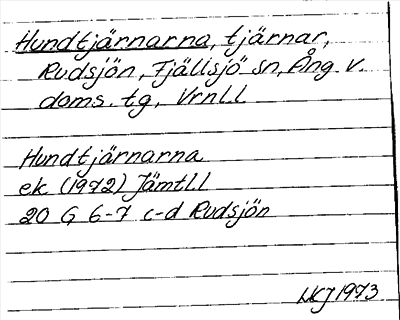 Hundtjärnarna, tjärnar,
Rudsjön, Fjällsjö sn, Ång. v.
doms. tg, Vrnl.l
Hundtjärnarna
ek. (1972) Jämtl.l
20 G 6-7 c-d Rudsjön
1973